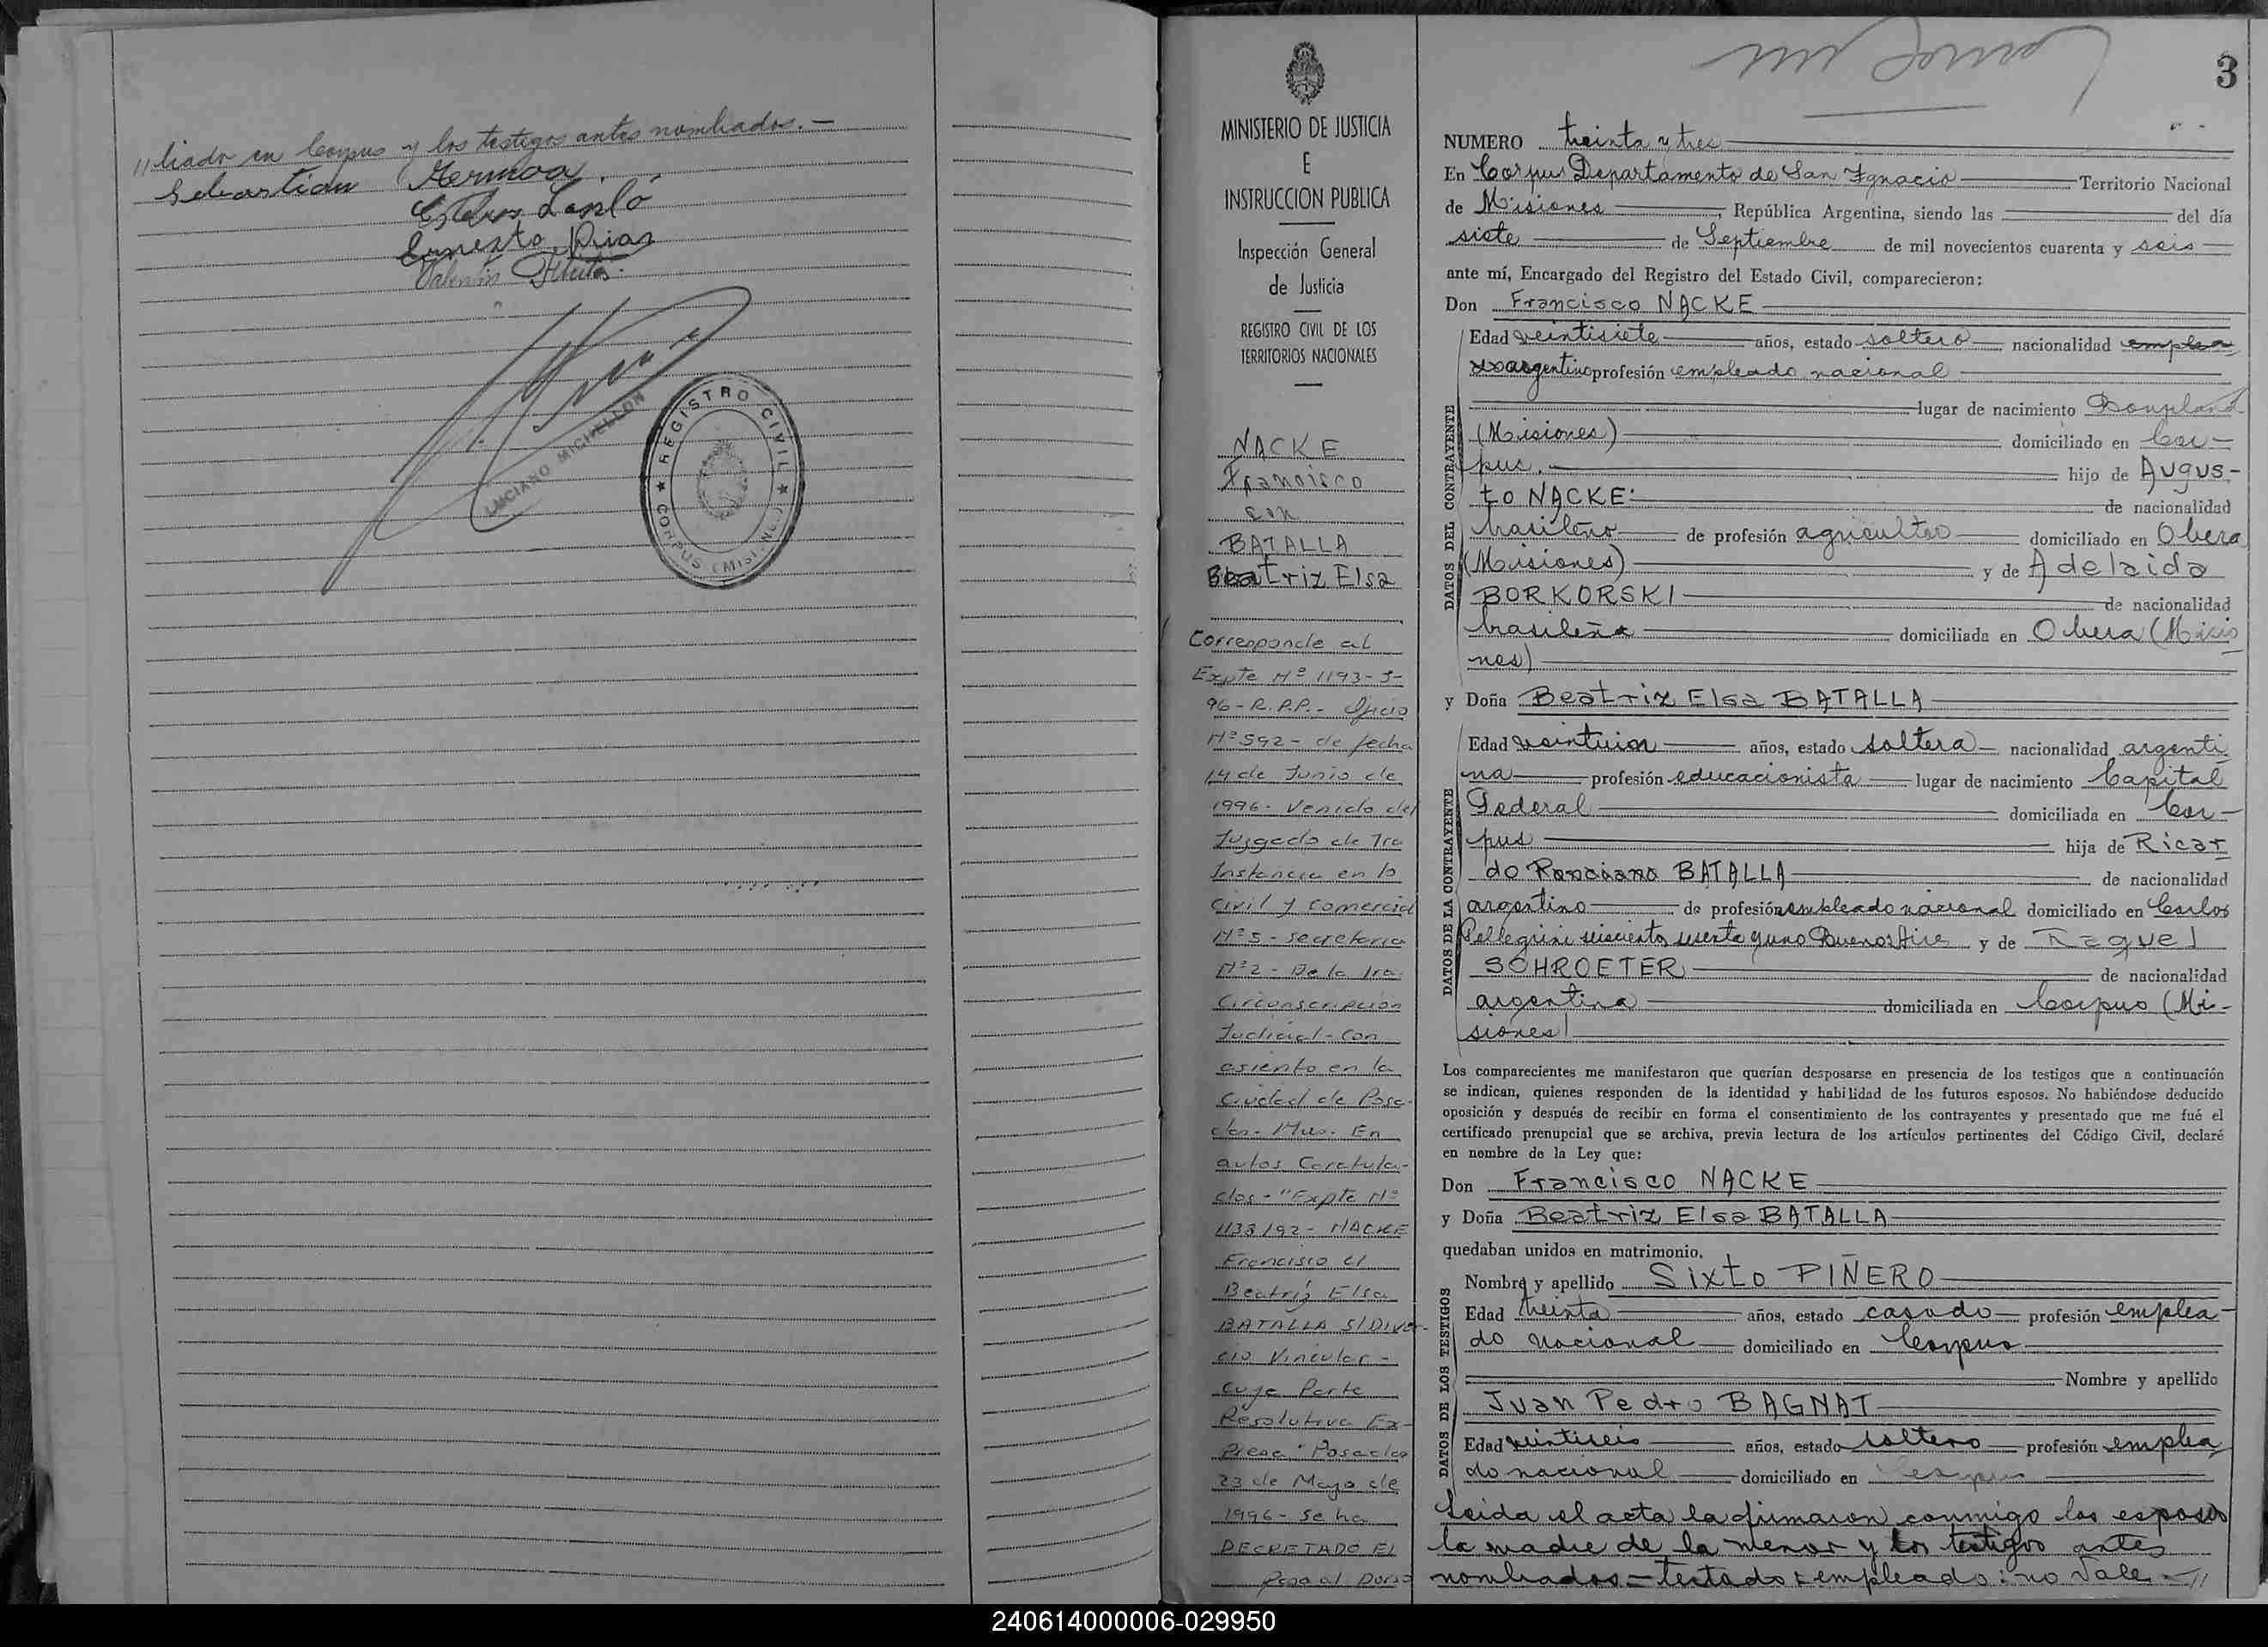 //liado en Corpus y los testigos antes nombrados.—
Sebastian
Ernesto
Valentin
LUCIANO MICHELLON
★ REGISTRO CIVIL ★
CORPUS (MISI
3
MINISTERIO DE JUSTICIA
E
INSTRUCCION PUBLICA
Inspección General
de Justicia
REGISTRO CIVIL DE LOS
TERRITORIOS NACIONALES
NACKE
Francisco
con
BATALLA
Beatriz Elsa
Corresponde al
Expte Nº 1193-S-
96-R.P.P.- Oficio
Nº 592- de fecha
14 de Junio de
1996- Venido del
Juzgado de 1ra
Instancia en lo
Civil y Comercial
Nº 5 - secretaria
Nº 2 - De la 1ra.
Circunscripcion
Judicial- con
asiento en la
Ciudad de Posa-
das- Mnes. En
autos Caratula-
dos- "Expte Nº
1138/92- NACKE
Francisco c/
Beatriz Elsa
BATALLA S/Divor-
cio Vincular-
cuya Parte
Resolutiva Ex-
presa: Posadas
23 de Mayo de
1996- Se ha
DECRETADO El
Pasa al Dorso
NUMERO treinta y tres
En Corpus Departamento de San Ignacio Territorio Nacional
de Misiones , República Argentina, siendo las del día
siete de Septiembre de mil novecientos cuarenta y seis
ante mí, Encargado del Registro del Estado Civil, comparecieron:
Don Francisco NACKE
DATOS DEL CONTRAYENTE
Edad veintisiete años, estado soltero nacionalidad emplea
do argentino profesión empleado nacional
lugar de nacimiento Bonpland
(Misiones) domiciliado en Cor-
pus. hijo de Augus-
to NACKE: de nacionalidad
brasileño de profesión agricultor domiciliado en Obera
(Misiones) y de Adelaida
BORKORSKI de nacionalidad
brasileña domiciliada en Obera (Misio
nes)
y Doña Beatriz Elsa BATALLA
DATOS DE LA CONTRAYENTE
Edad veintiun años, estado soltera nacionalidad argenti
na profesión educacionista lugar de nacimiento Capital
Federal domiciliada en Cor-
pus hija de Ricar
do Ponciano BATALLA de nacionalidad
argentino de profesión empleado nacional domiciliado en Carlos
Pellegrini seiscientos sesenta y uno Buenos Aires y de Raquel
SCHROETER de nacionalidad
argentina domiciliada en Corpus (Mi-
siones)
Los comparecientes me manifestaron que querían desposarse en presencia de los testigos que a continuación
se indican, quienes responden de la identidad y habilidad de los futuros esposos. No habiéndose deducido
oposición y después de recibir en forma el consentimiento de los contrayentes y presentado que me fué el
certificado prenupcial que se archiva, previa lectura de los artículos pertinentes del Código Civil, declaré
en nombre de la Ley que:
Don Francisco NACKE
y Doña Beatriz Elsa BATALLA
quedaban unidos en matrimonio.
DATOS DE LOS TESTIGOS
Nombre y apellido Sixto PIÑERO
Edad treinta años, estado casado profesión emplea-
do nacional domiciliado en Corpus
Nombre y apellido
Juan Pedro BAGNAT
Edad veintiseis años, estado soltero profesión emplea
do nacional domiciliado en Corpus
Leida el acta la firmaron conmigo los esposos
la madre de la menor y los testigos antes
nombrados=testado: empleado: no vale.—//
240614000006-029950